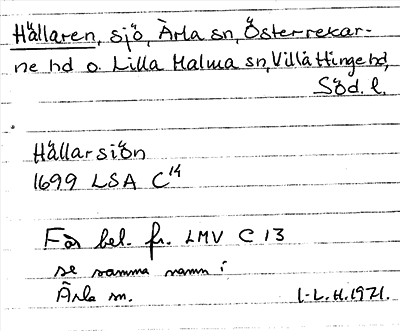 Hällaren, sjö, Ärla sn, Österrekar-
ne hd o. Lilla Malma sn, Villåttinge hd,
Söd. l.
Hällarsiön
1699 LSA C14
För bel. fr. LMV C 13
se samma namn i
Ärla sn.
I-L.H. 1971.